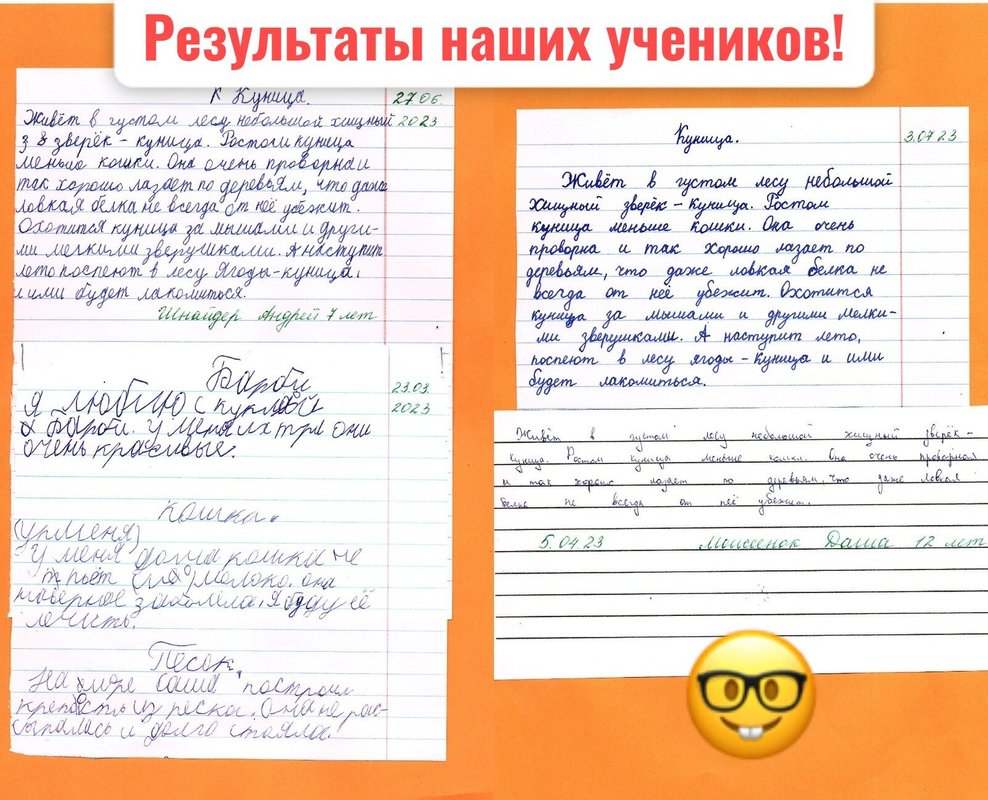 Результаты наших учеников!
К Куница.
27 06.
Живёт в густом лесу небольшой хищный
2023
з 8 зверёк - куница. Ростом куница
меньше кошки. Она очень проворна и
так хорошо лазает по деревьям, что даже
ловкая белка не всегда от неё убежит.
Охотится куница за мышами и други-
ми мелкими зверушками. А наступит
лето поспеют в лесу ягоды-куница,
и ими будет лакомиться.
Шнайдер Андрей 7 лет
Барби
23.03.
Я люблю с куклой
2023
Барби. У меня их три они
очень красивые.
Кошка.
(уменя)
У меня дома кошка не
пьёт молоко. она
наверное заболела. Я буду её
лечить.
Песок.
На море Саша построил
крепость из песка. Она не рас-
сыпалась и долго стояла.
Куница.
3.07 23
Живёт в густом лесу небольшой
хищный зверёк - куница. Ростом
куница меньше кошки. Она очень
проворна и так хорошо лазает по
деревьям, что даже ловкая белка не
всегда от неё убежит. Охотится
куница за мышами и другими мелки-
ми зверушками. А наступит лето,
поспеют в лесу ягоды - куница и ими
будет лакомиться.
Живёт в густом лесу небольшой хищный зверёк -
куница. Ростом куница меньше кошки. Она очень проворная
и так хорошо лазает по деревьям, что даже ловкая
белка не всегда от неё убежит.
5.04 23
Моисеенок Даша 12 лет